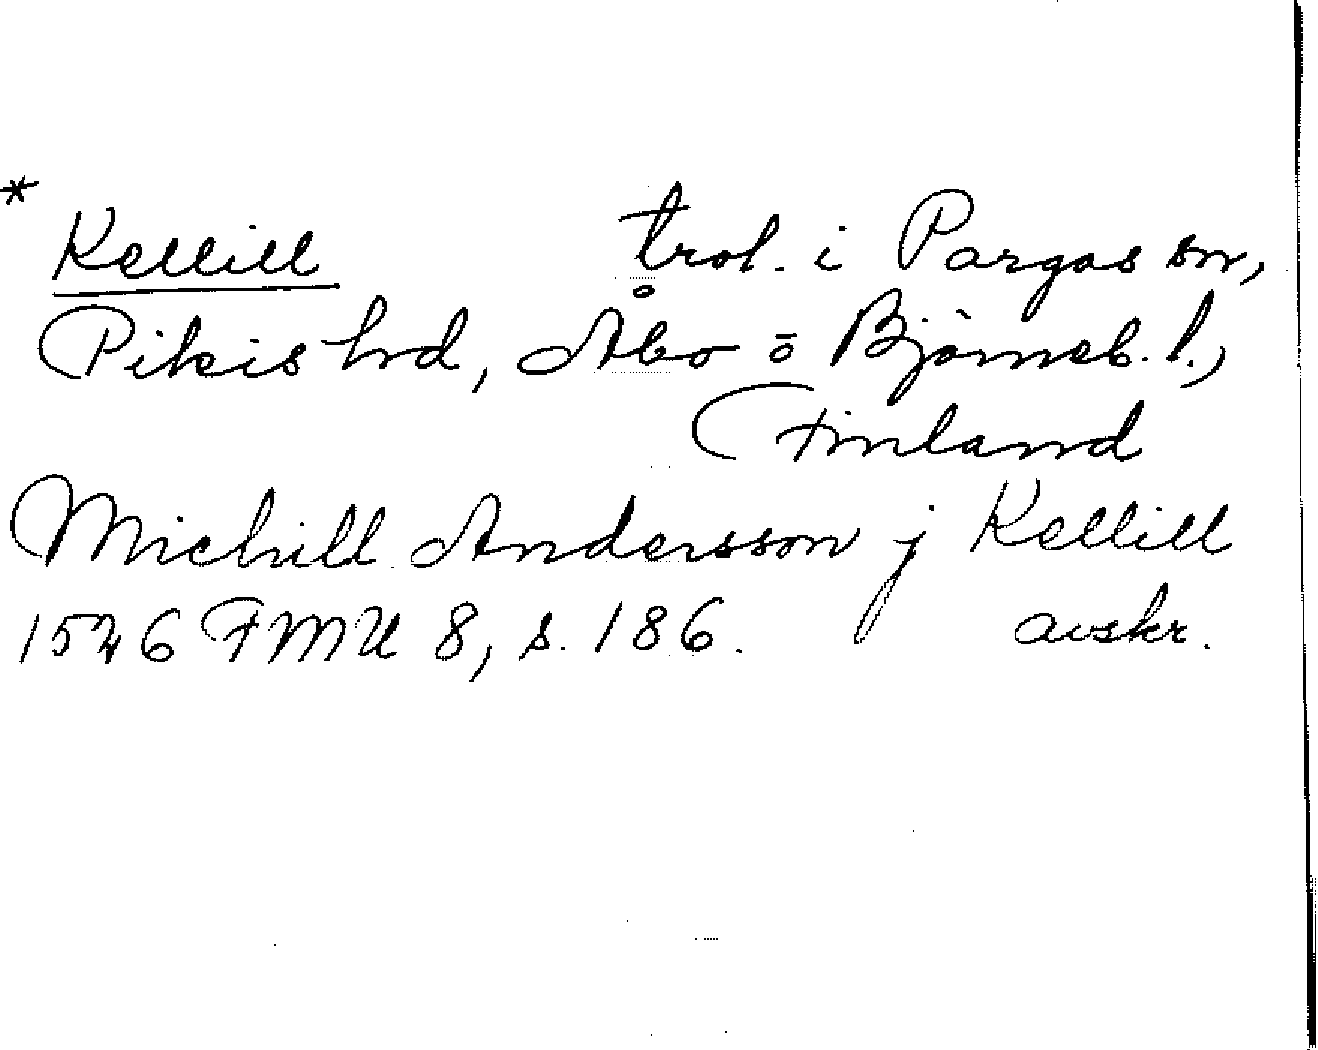 * Kellill trol. i Pargas sn,
Pikis hrd, Åbo o Björneb. l.,
Finland
Michill Andersson j Kellill
1526 FMU 8, s. 186. avskr.